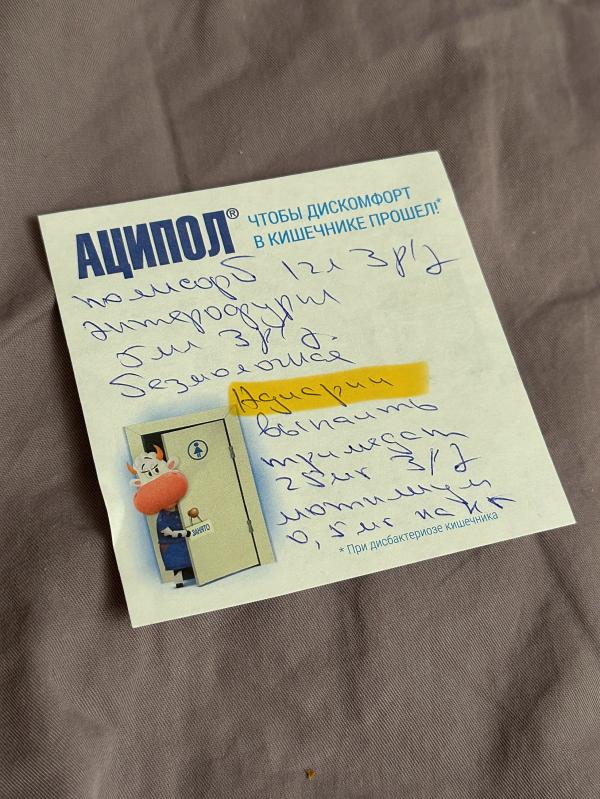 АЦИПОЛ®
ЧТОБЫ ДИСКОМФОРТ
В КИШЕЧНИКЕ ПРОШЕЛ!*
полисорб 1гл 3 р/д
энтерофурил
5мл 3р/д.
безмолочная
выпаить
тримедат
25мг 3/д
мотилиум
0,5мг на кг
ЗАНЯТО
* При дисбактериозе кишечника